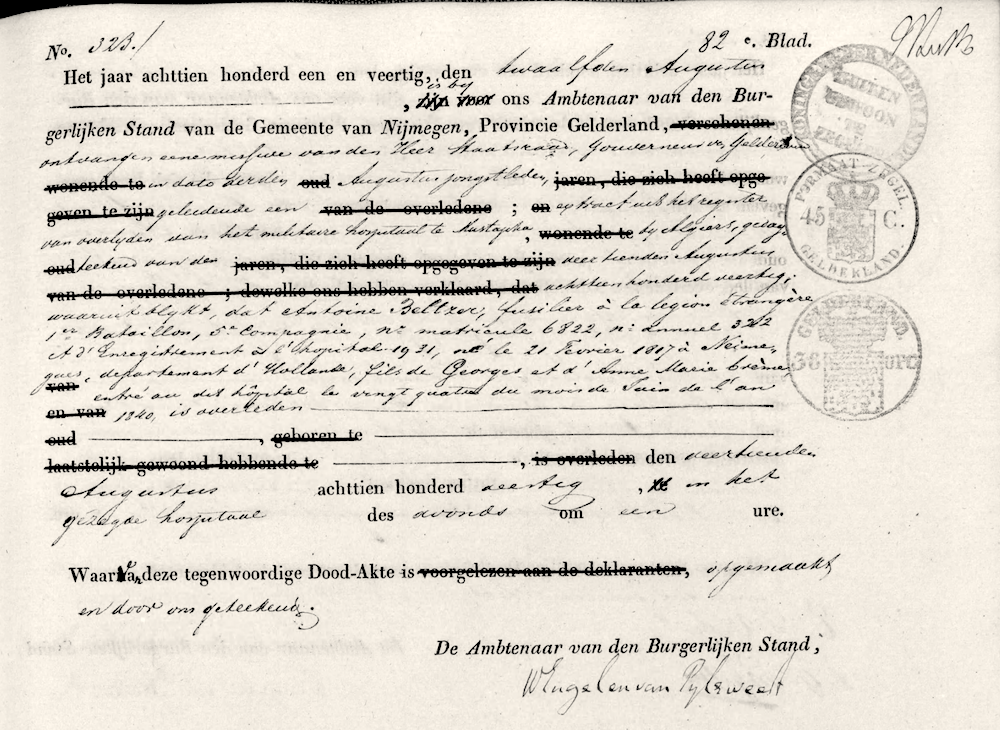 No. 323./ 82 e. Blad.
Het jaar achttien honderd een en veertig, den twaalfden Augustus
is by
, zijn voor ons Ambtenaar van den Bur-
gerlijken Stand van de Gemeente van Nijmegen, Provincie Gelderland, verschenen
ontvangen eene missive van den Heer Staatsraad, Gouverneur van Gelderland
wonende te in dato derden oud Augustus jongstleden, jaren, die zich heeft opge-
geven te zijn geleidende een van de overledene ; en extract uit het register
van overlyden van het militaire hospitaal te Mustapha, wonende te by Algiers, getee
oud teekend van den jaren, die zich heeft opgegeven te zijn Augustus
van de overledene ; dewelke ons hebben verklaard, dat achttien honderd veertig;
waaruit blykt, dat Antoine fusilier à la legion étrangère
1er Bataillon, 5e Compagnie, no matricule 6822, no annuel 322
et d'Enregistrement à l'hopital 1931, né le 21 Fevrier 1817 à Neime
gues, departement d'Hollande, fils de Georges et d'Anne Marie
van entré au dit hôpital le vingt quatre du mois de Juin de l'an
en van 1840, is overleden
oud , geboren te
laatstelijk gewoond hebbende te , is overleden den
Augustus achttien honderd veertig , te in het
gezegde hospitaal des avonds om een ure.
Waarvan deze tegenwoordige Dood-Akte is voorgelezen aan de deklaranten, opgemaakt
en door ons geteekend.
De Ambtenaar van den Burgerlijken Stand,
WEngelen van Pylsweert
BUITEN
GEWOON
TE
ZEGELEN
FORMAAT-ZEGEL.
45 C.
GELDERLAND.
GELDERLAND.
38